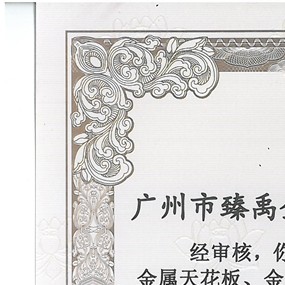 广州市臻禹金
经审核，你
金属天花板、金